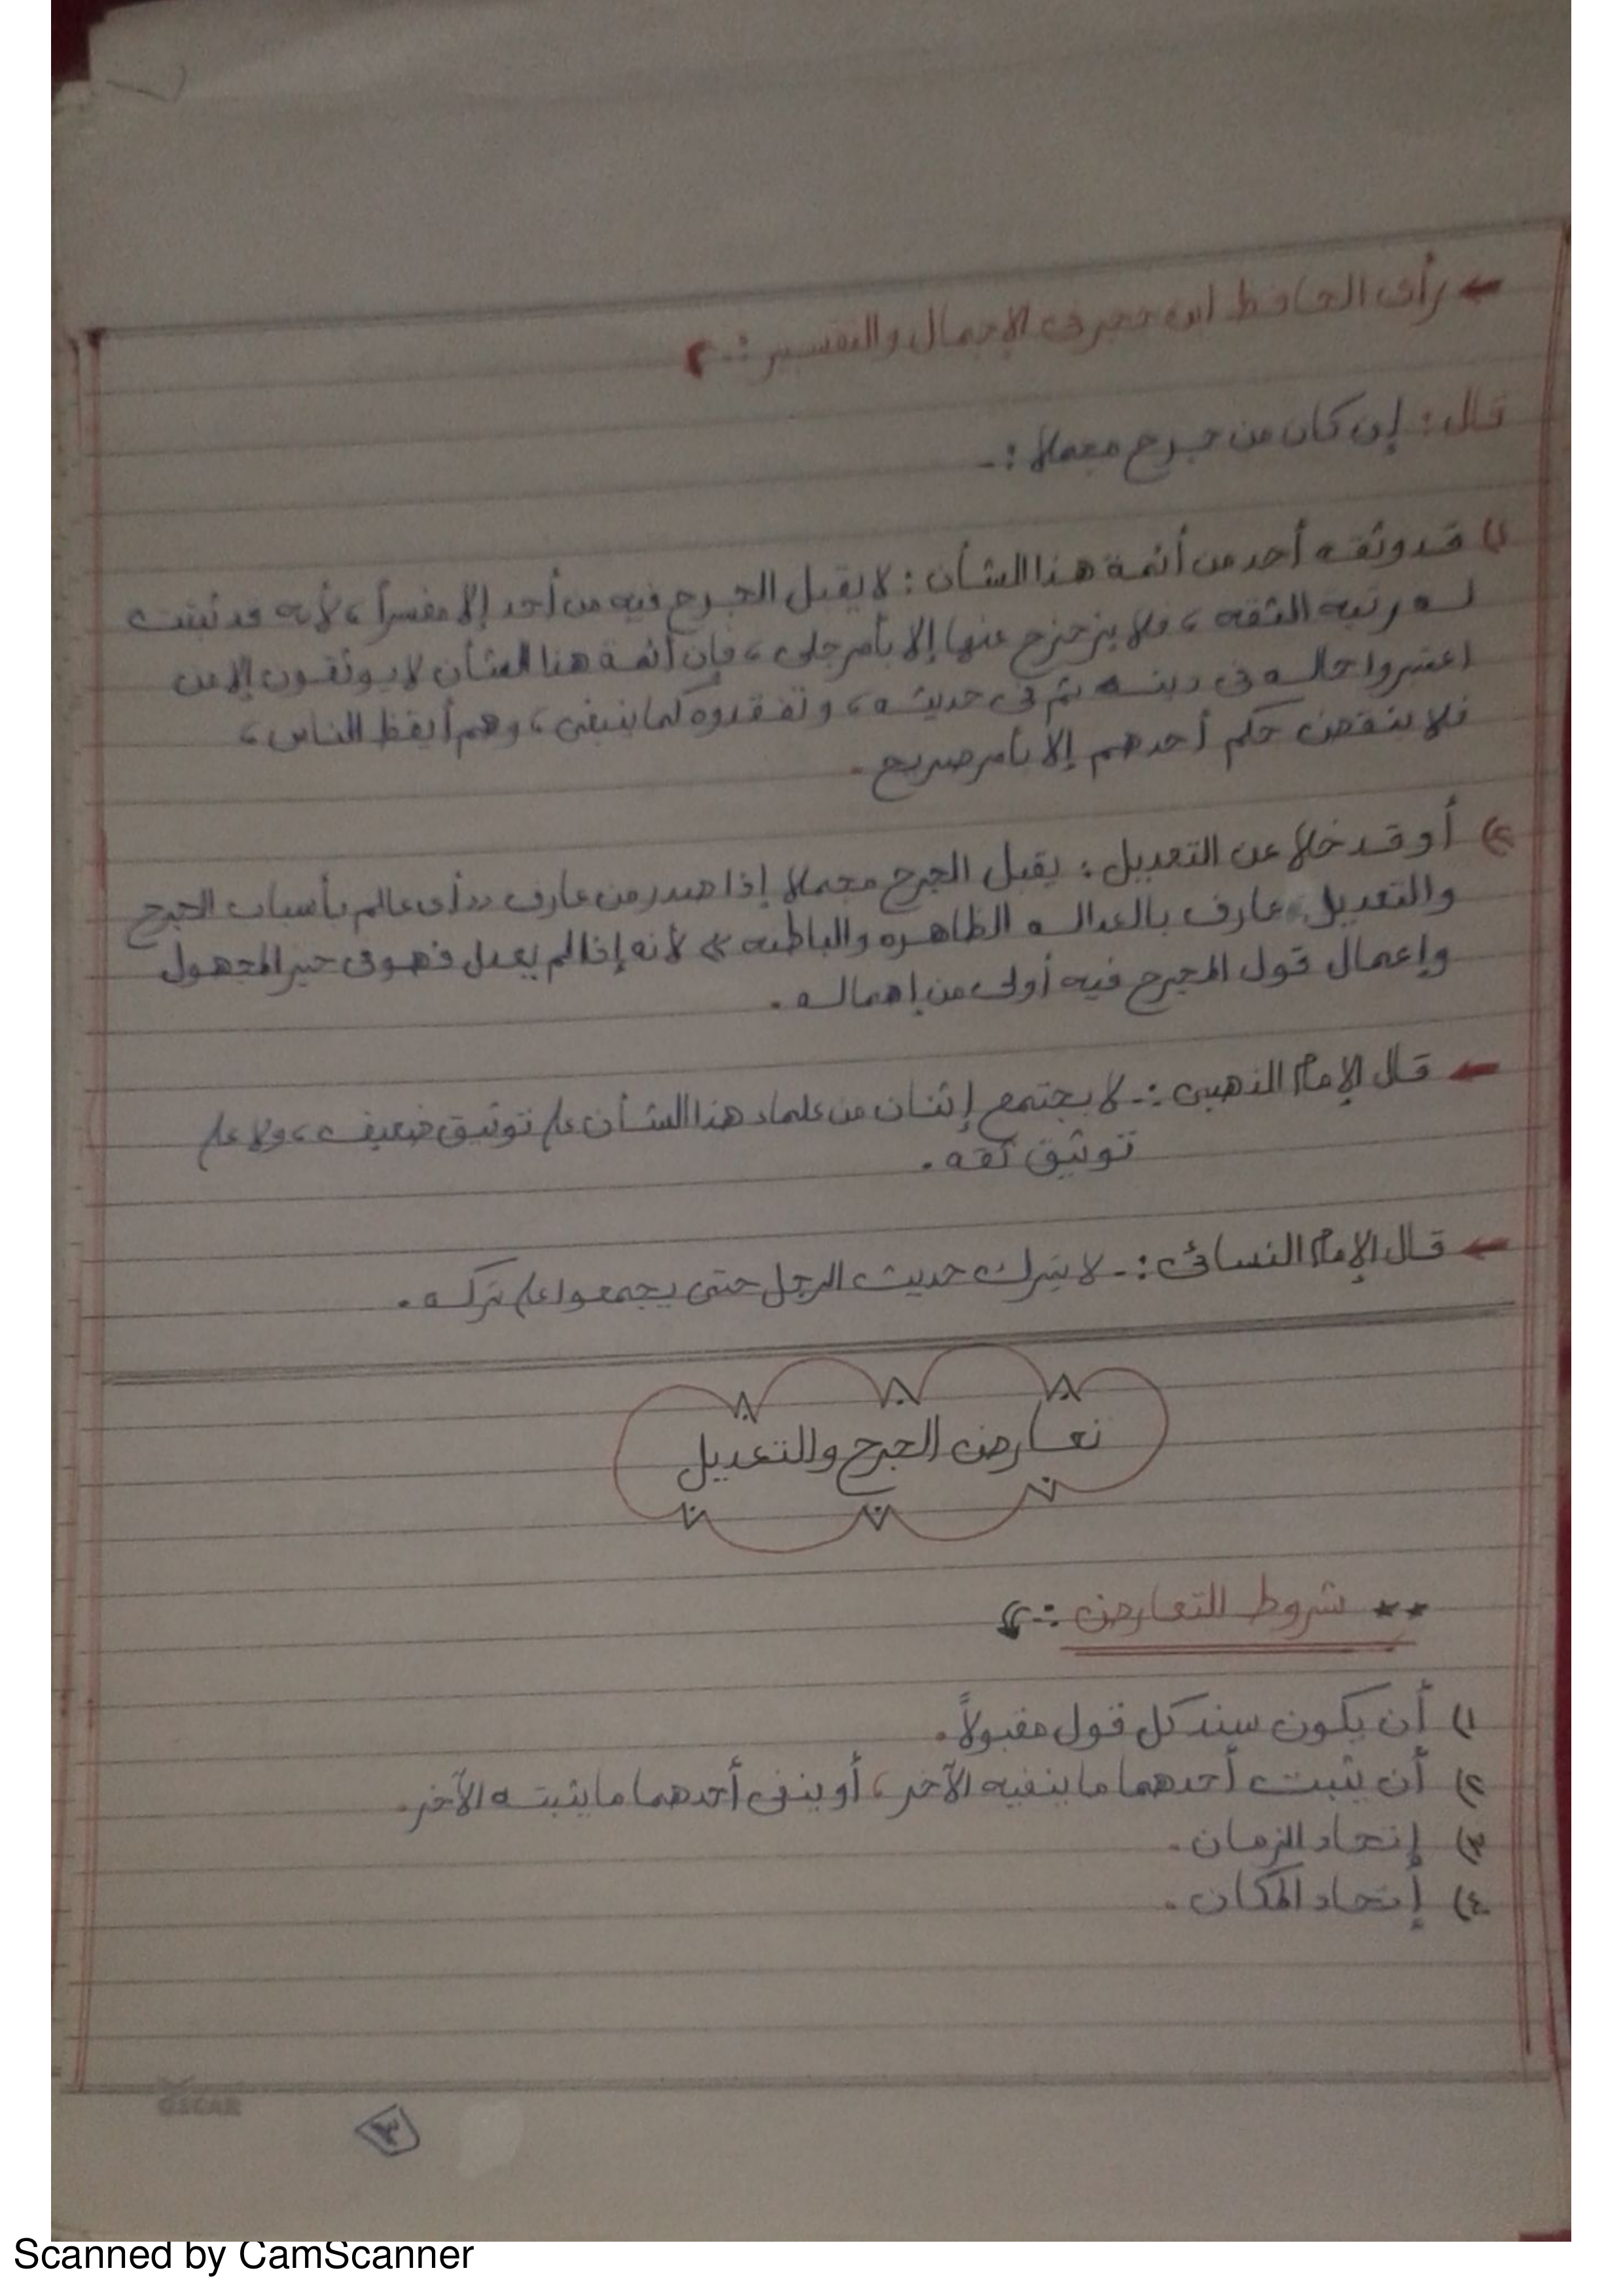 ← رأى الحافظ ابن حجر فى الإجمال والتفسير :-
قال : إن كان من جرح مجملاً :-
١) قد وثقه أحد من أئمة هذا الشأن : لا يقبل الجرح فيه من أحد إلا مفسراً ، لأنه قد ثبتت
له رتبه الثقه ، فلا يزحزح عنها إلا بأمر جلى ، فإن أئمة هذا الشأن لا يوثقون إلا من
اعتبروا حاله فى دينه ثم فى حديثه ، وتفقدوه كما ينبغى ، وهم أيقظ الناس ،
فلا ينقض حكم أحدهم إلا بأمر صريح .
٢) أو قد خلا عن التعديل : يقبل الجرح مجملا إذا صدر من عارف "أى عالم بأسباب الجرح
والتعديل عارف بالعداله الظاهره والباطنه " لأنه إذا لم يعدل فهو فى حيز المجهول
وإعمال قول المجرح فيه أولى من إهماله .
← قال الإمام الذهبى :- لا يجتمع إثنان من علماء هذا الشأن على توثيق ضعيف ، ولا على
توثيق ثقه .
← قال الإمام النسائى :- لا يترك حديث الرجل حتى يجمعوا على تركه .
تعارض الجرح والتعديل
** شروط التعارض :-
١) أن يكون سند كل قول مقبولاً .
٢) أن يثبت أحدهما ما ينفيه الآخر ، أو ينفى أحدهما ما يثبته الآخر .
٣) إتحاد الزمان .
٤) إتحاد المكان .
OSCAR
٣
Scanned by CamScanner